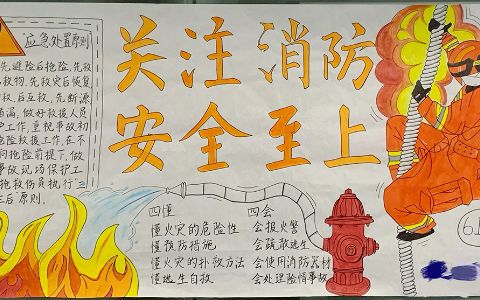 应急处置原则
先避险后抢险,先救
救物,先救灾后恢复
救,后互救,先断源
堵漏,做好救援人员
护工作,重视事故初
危险救援工作,在不
抢险前提下,做
事故现场保护工
抢救伤员执行"三
三后"原则。
关注消防
安全至上
四懂
懂火灾的危险性
懂预防措施
懂火灾的扑救方法
懂逃生自救
四会
会报火警
会疏散逃生
会使用消防器材
会处理险情事故